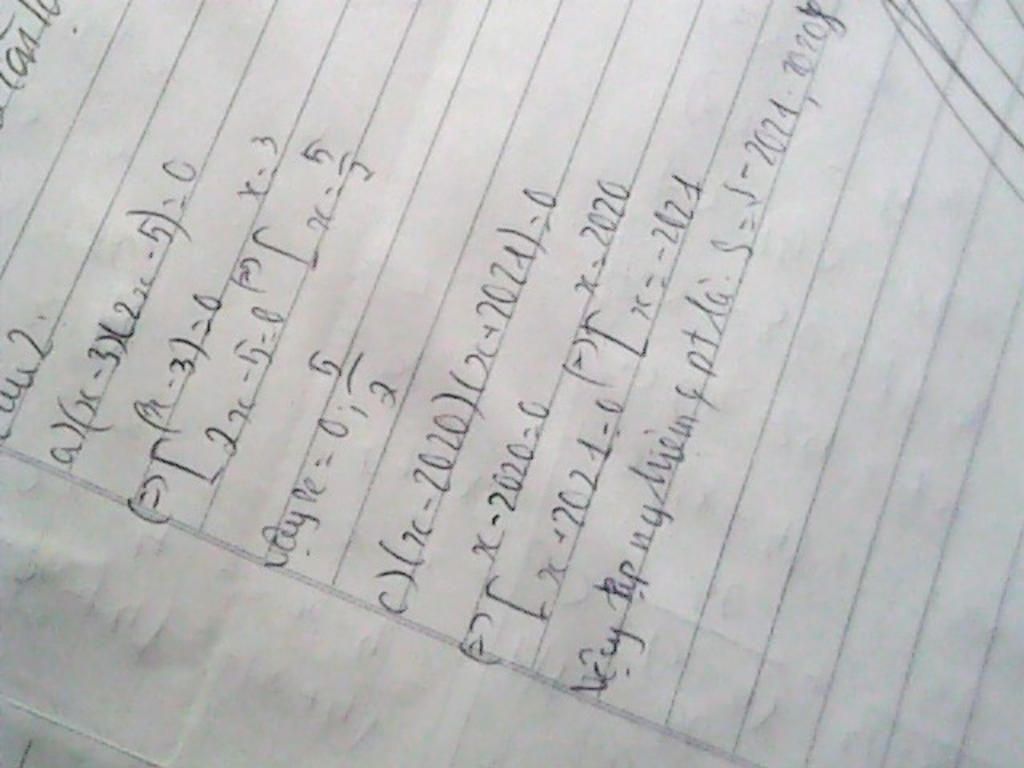 Câu 2:
a) (x - 3)(2x - 5) = 0
(=) [ (x - 3) = 0
[ 2x - 5 = 0 (=) [ x = 3
[ x = 5/2
Vậy x = 0; 5/2
c) (x - 2020)(x + 2021) = 0
(=) [ x - 2020 = 0
[ x + 2021 = 0 (=) [ x = 2020
[ x = - 2021
Vậy tập nghiệm pt là: S = { - 2021; 2020 }